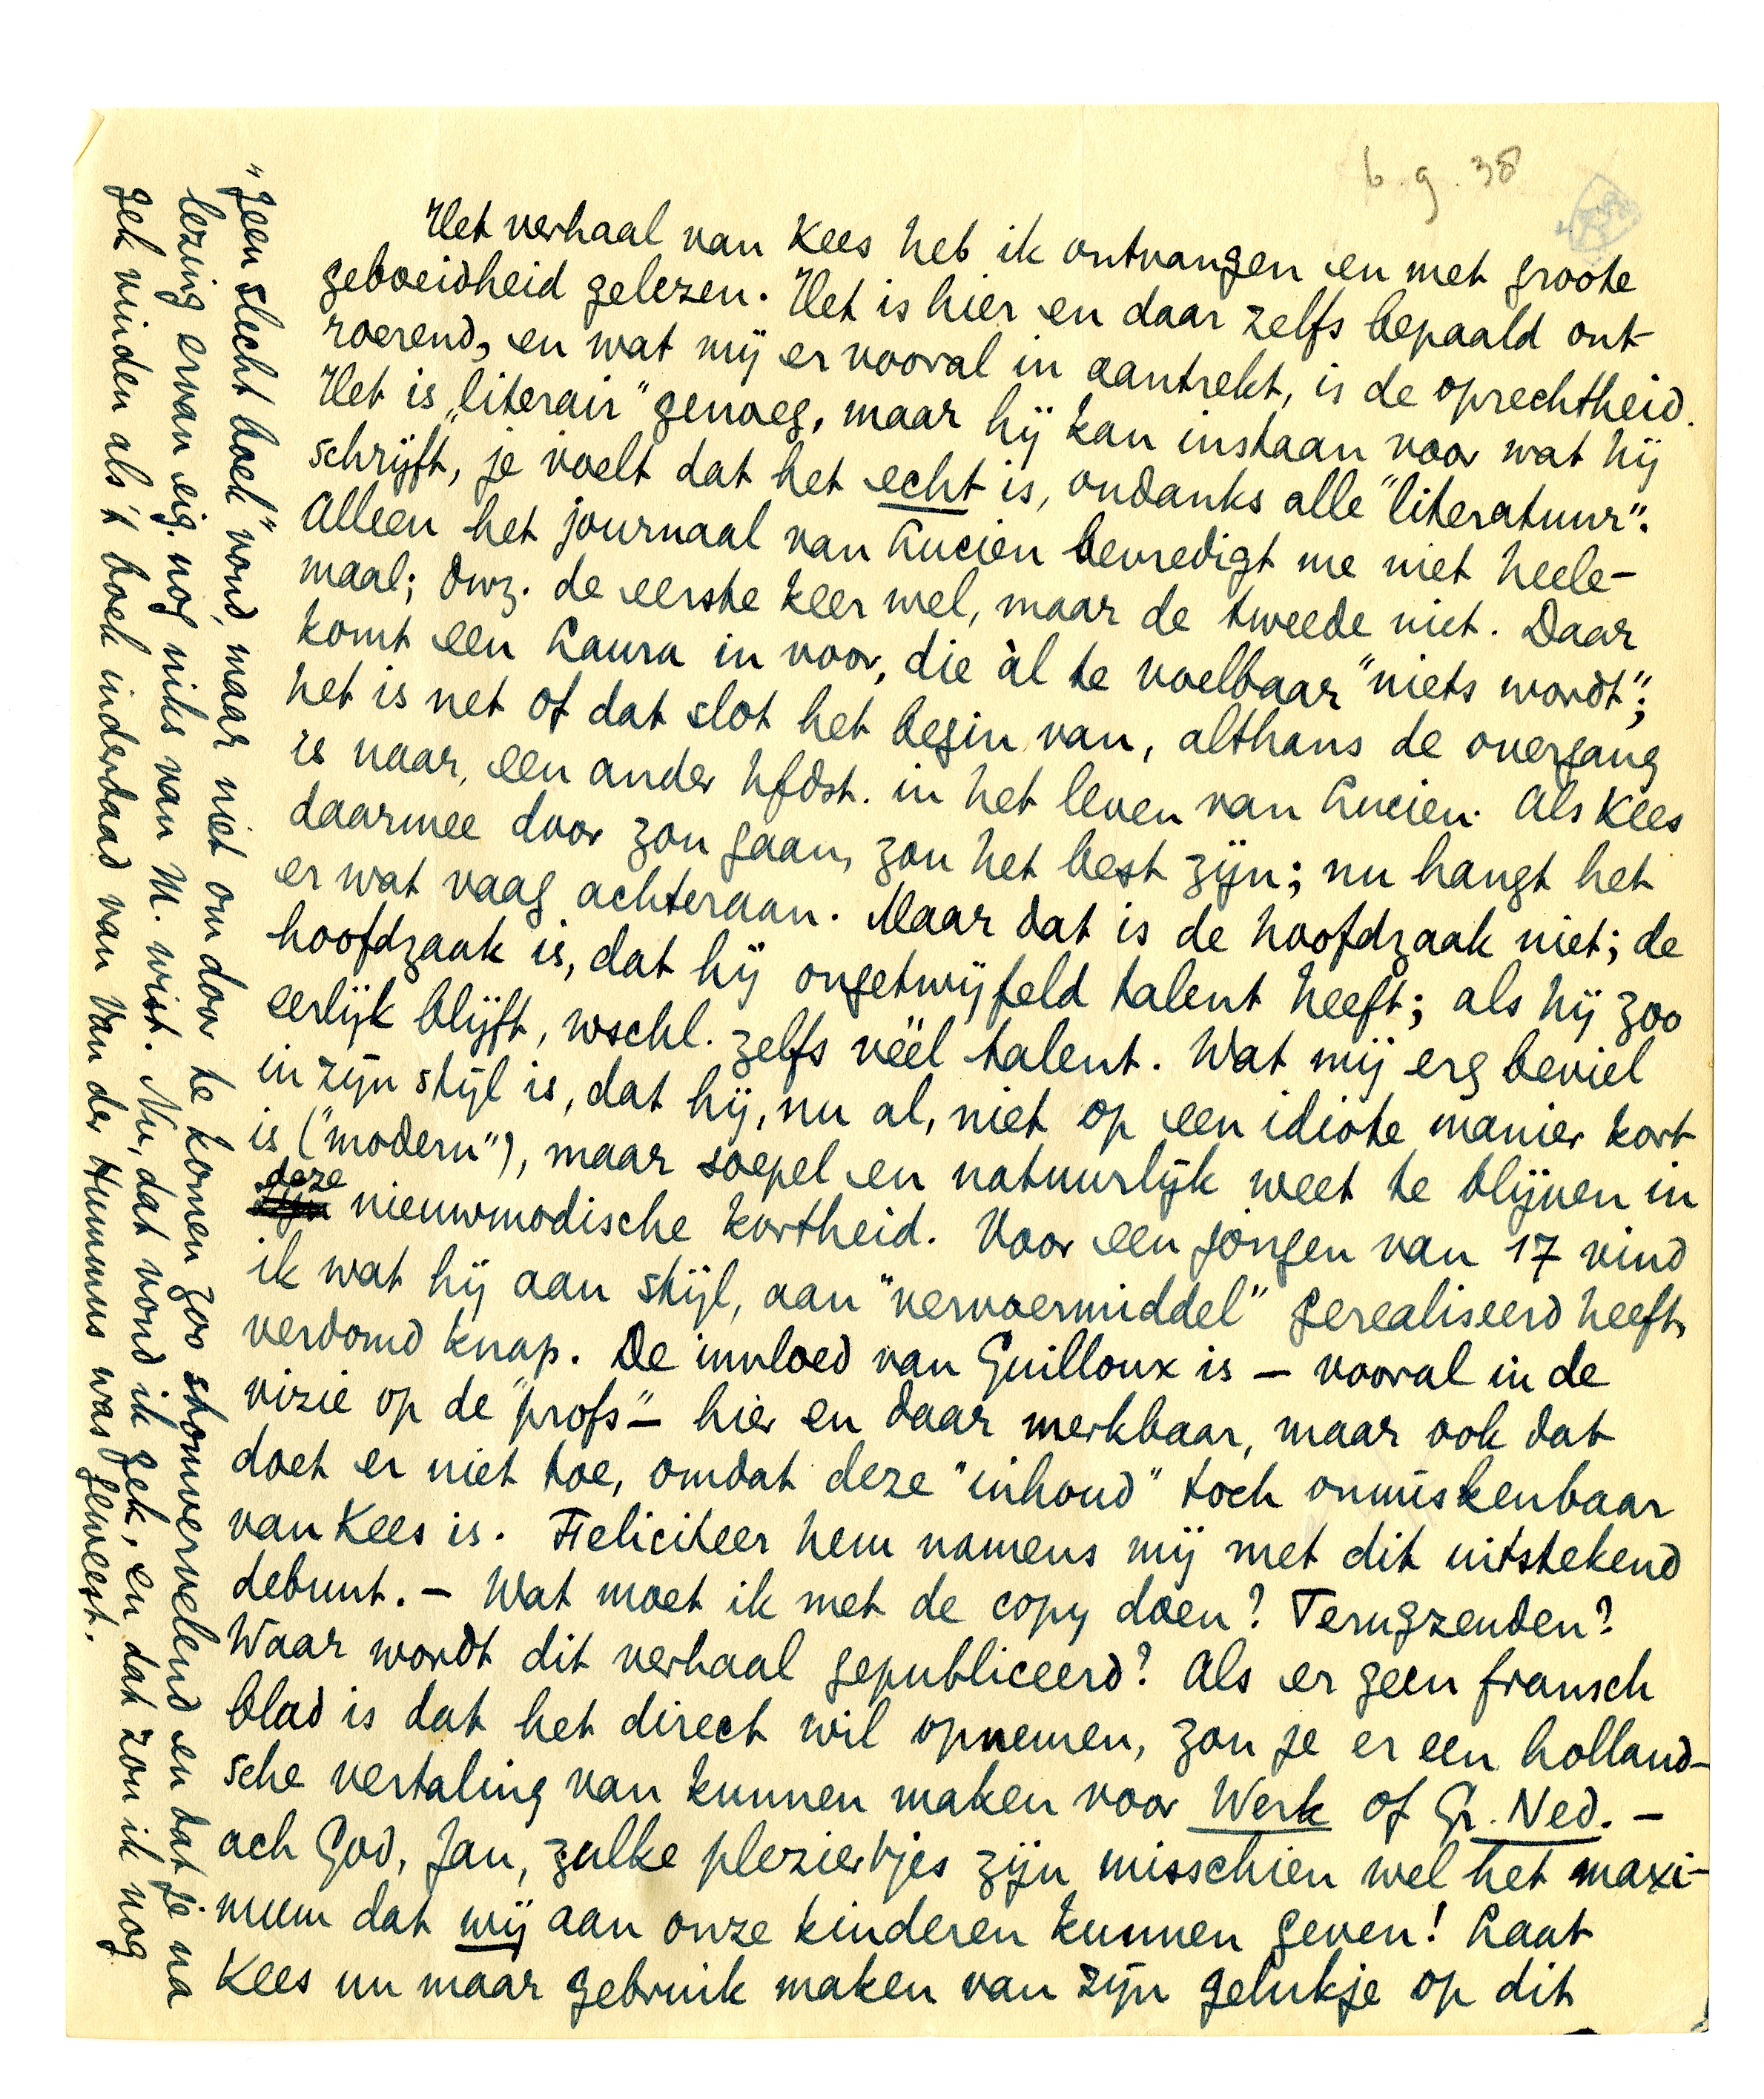 6.9.38
Het verhaal van Kees heb ik ontvangen en met groote
geboeidheid gelezen. Het is hier en daar zelfs bepaald ont-
roerend, en wat mij er vooral in aantrekt, is de oprechtheid.
Het is „literair" genoeg, maar hij kan instaan voor wat hij
schrijft, je voelt dat het echt is, ondanks alle "literatuur".
Alleen het journaal van Lucien bevredigt me niet heele-
maal; dwz. de eerste keer wel, maar de tweede niet. Daar
komt een Laura in voor, die àl te voelbaar "niets wordt";
het is net of dat slot het begin van, althans de overgang
is naar, een ander hfdst. in het leven van Lucien. Als Kees
daarmee door zou gaan, zou het best zijn; nu hangt het
er wat vaag achteraan. Maar dat is de hoofdzaak niet; de
hoofdzaak is, dat hij ongetwijfeld talent heeft; als hij zoo
eerlijk blijft, wschl. zelfs véél talent. Wat mij erg beviel
in zijn stijl is, dat hij, nu al, niet op een idiote manier kort
is ("modern"), maar soepel en natuurlijk weet te blijven in
deze nieuwmodische kortheid. Voor een jongen van 17 vind
ik wat hij aan stijl, aan "vervoermiddel" gerealiseerd heeft,
verdomd knap. De invloed van Guilloux is – vooral in de
vizie op de "profs" – hier en daar merkbaar, maar ook dat
doet er niet toe, omdat deze "inhoud" toch onmiskenbaar
van Kees is. Feliciteer hem namens mij met dit uitstekend
debuut. – Wat moet ik met de copy doen? Terugzenden?
Waar wordt dit verhaal gepubliceerd? Als er geen fransch
blad is dat het direct wil opnemen, zou je er een holland-
sche vertaling van kunnen maken voor Werk of Gr. Ned. –
ach God, Jan, zulke pleziertjes zijn misschien wel het maxi-
mum dat wij aan onze kinderen kunnen geven! Laat
Kees nu maar gebruik maken van zijn gelukje op dit
"geen slecht boek" vond, maar niet om door te komen zoo stomvervelend en dat je na
lezing ervan eig. nog niks van M. wist. Nu, dat vond ik gek, en dat zou ik nog
gek vinden als 't boek inderdaad van Van der Hummus was geweest.